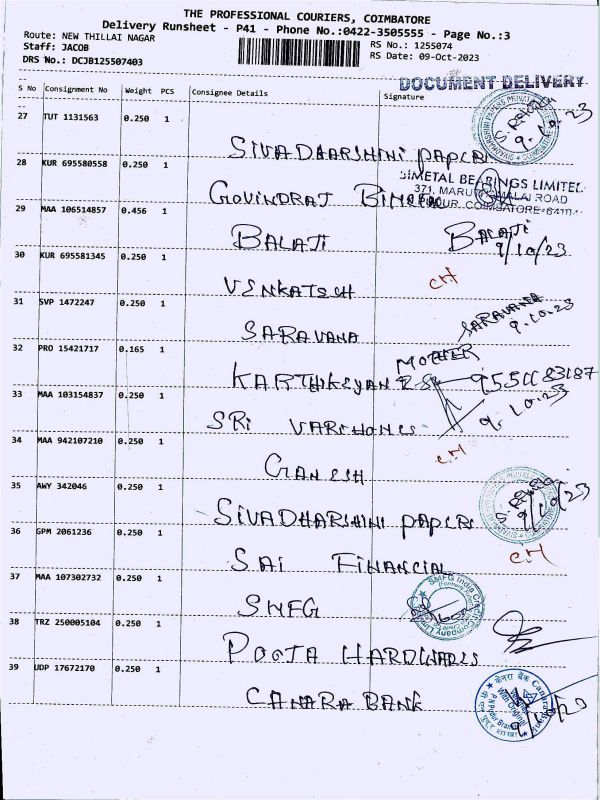 THE PROFESSIONAL COURIERS, COIMBATORE
Delivery Runsheet - P41 - Phone No.:0422-3505555 - Page No.:3
Route: NEW THILLAI NAGAR
RS No.: 1255074
Staff: JACOB
RS Date: 09-Oct-2023
DRS No.: DCJB125507403
DOCUMENT DELIVERY
S No Consignment No Weight PCS Consignee Details Signature
27 TUT 1131563 0.250 1
SIVADHARSHINI PAPERS
9.10.23
28 KUR 695580558 0.250 1
BIMETAL BEARINGS LIMITED
371, MARUDHAMALAI ROAD
COIMBATORE
GOVINDRAJ BIMETAL
29 MAA 106514857 0.456 1
BALAJI BALAJI
9/10/23
30 KUR 695581345 0.250 1
VENKATESH CH
31 SVP 1472247 0.250 1
SARAVANA SARAVANA
9.10.23
32 PRO 15421717 0.165 1
MOTHER
KARTHIKEYAN
33 MAA 103154837 0.250 1
9.10.23
SRI
34 MAA 942107210 0.250 1
GANESH CH
35 AWY 342046 0.250 1
SIVADHARSHINI PAPERS
9/10/23
36 GPM 2061236 0.250 1
SAI FINANCIAL CH
37 MAA 107302732 0.250 1
SMFG
SMFG India Credit Company Limited
38 TRZ 250005104 0.250 1
POOJA HARDWARES
39 UDP 17672170 0.250 1
CANARA BANK
केनरा बैंक Canara Bank